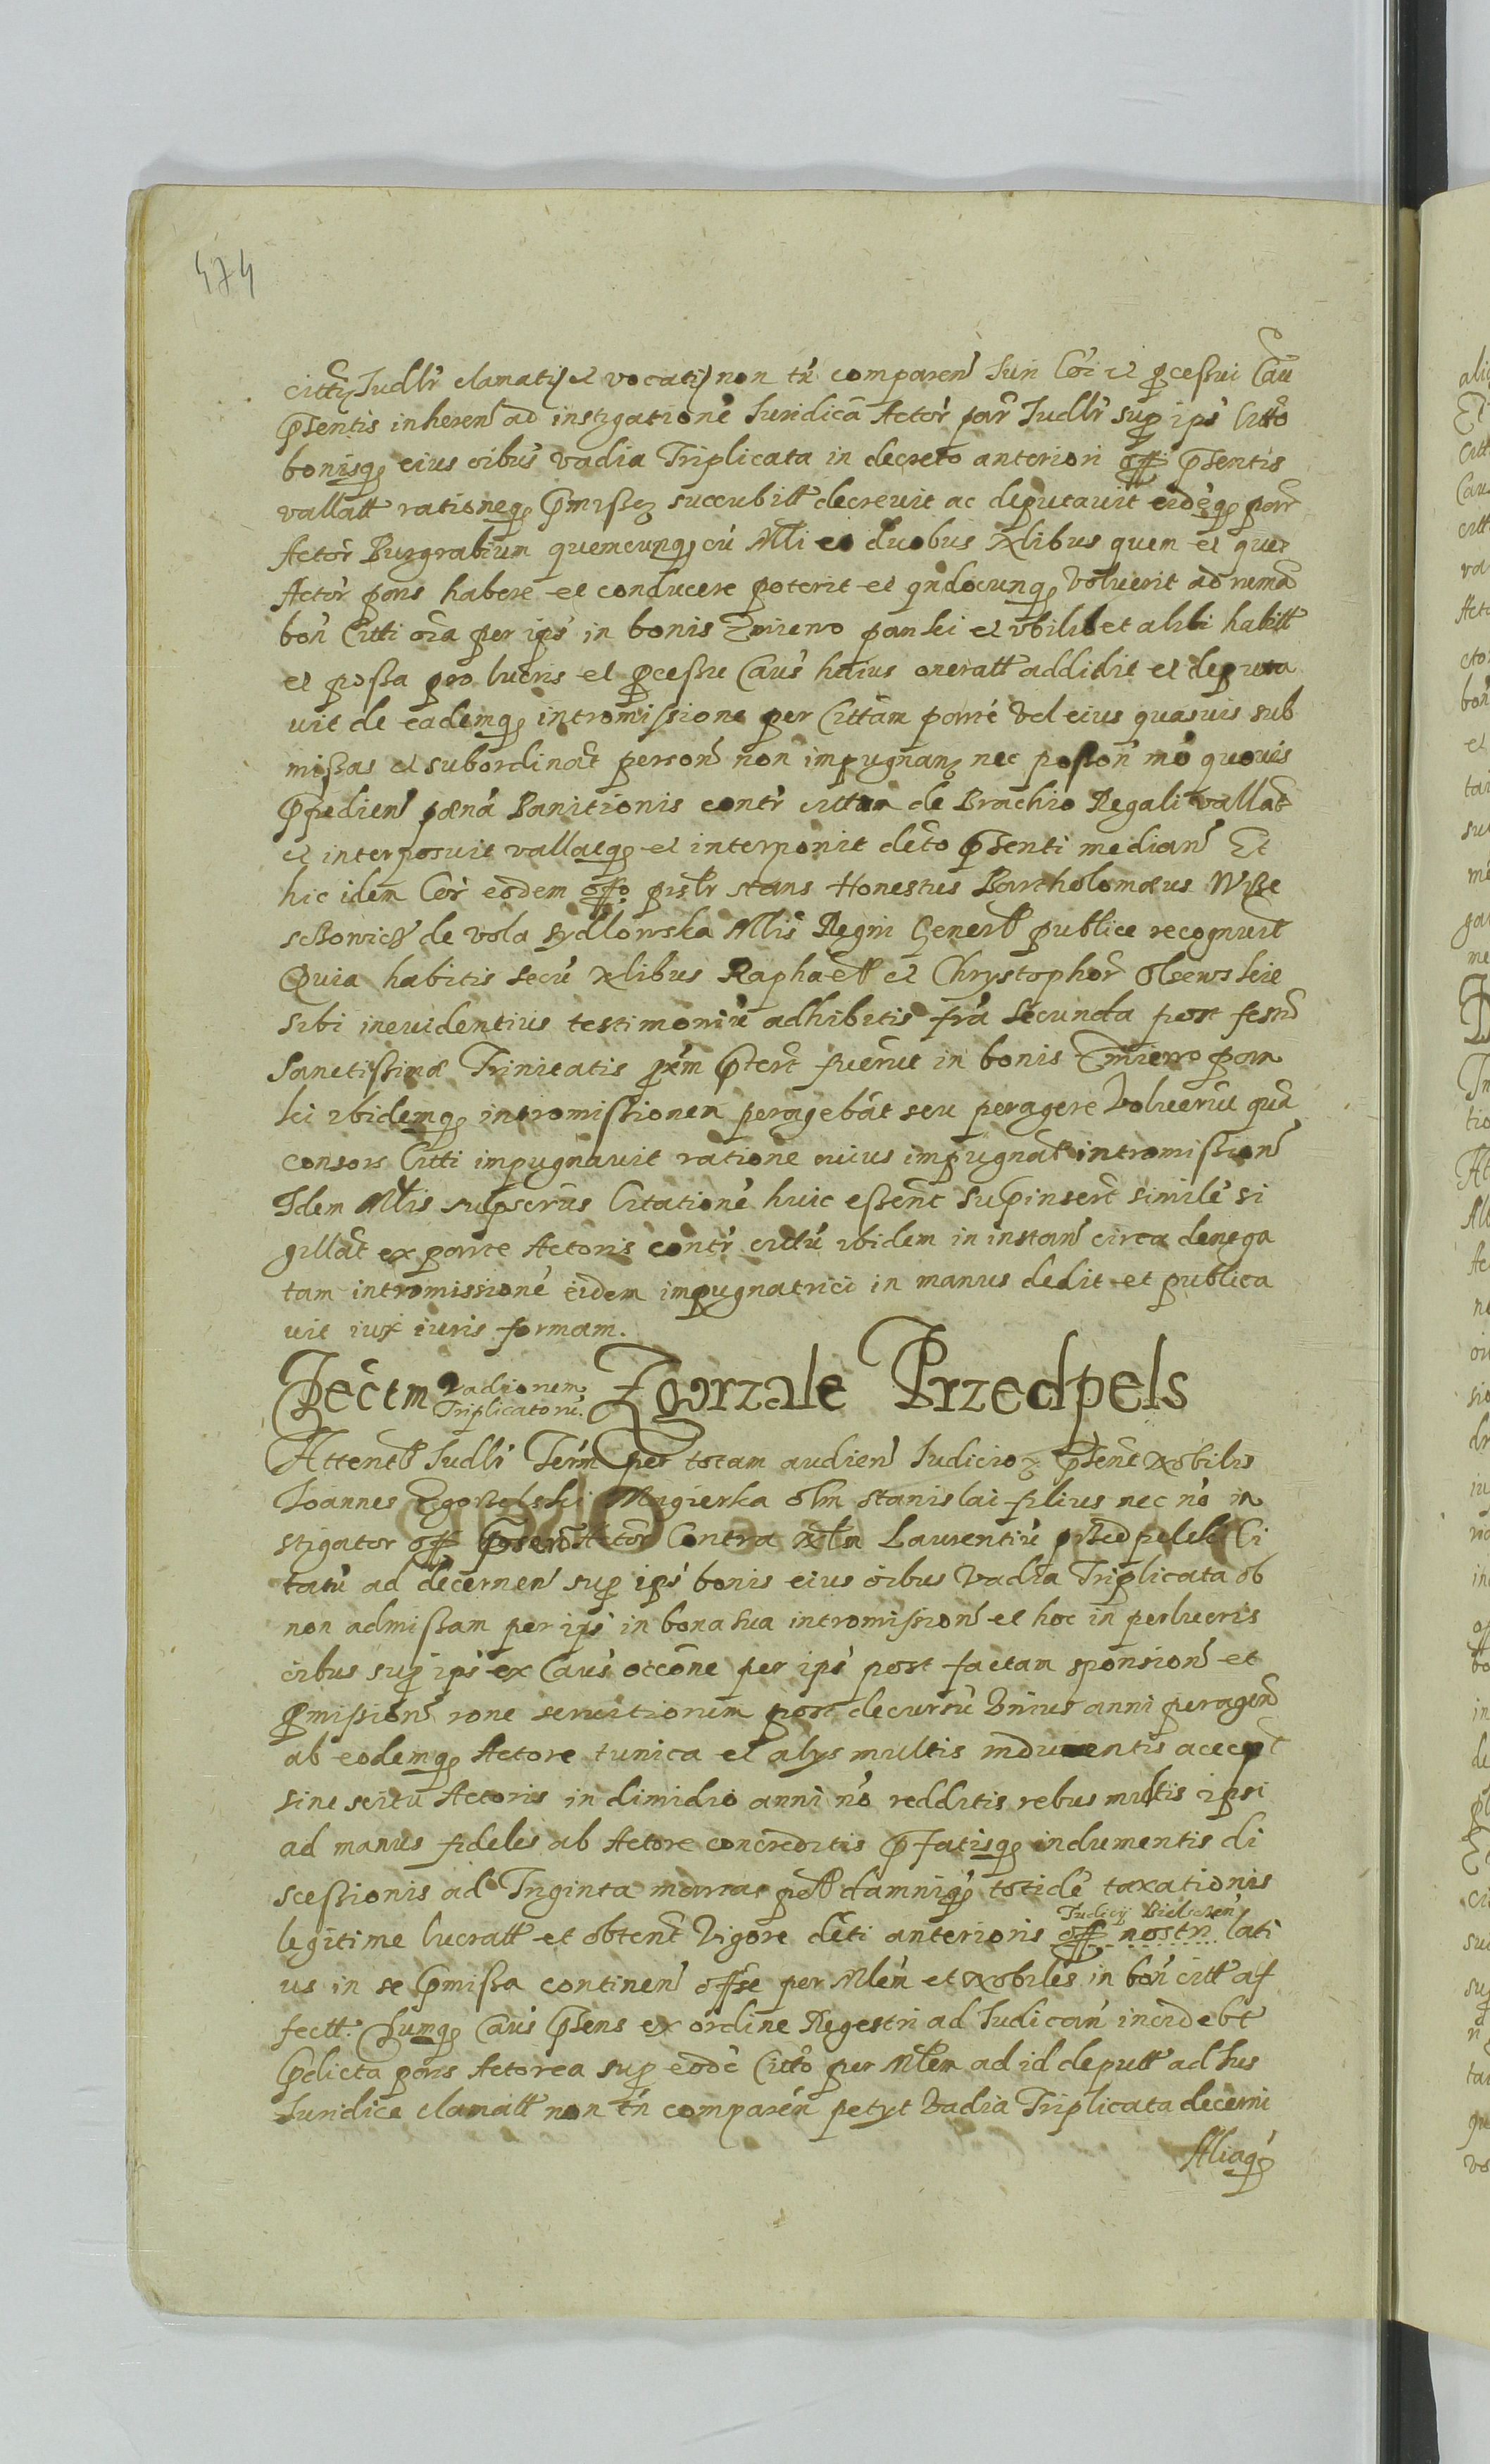 474
cittu Judlr clamati et vocati non tn comparen Juri Cöi et pcessui Cau
Psentis inheren ad instigatione Juridica Actor par Judlr sup ips Citto
bonisq eius oibus vadia Triplicata in decreto anteriori off Psentis
vallatt rationeq Pmissor succubitt decreuit ac deputauit eideq parr
Actor Burgrabium quemcunq cu Mli eo duobus Nlibus quem et quos
Actor pars habere et conducere poterit et qndocunq Voluerit ad rema
bon Citti oia per ips in bonis Zmiewo panki et vbilibet alibi habitt
et possa pro lucris et pcessu Caus huius oneratt addidit et deputa
uit de eademq intromissione per Cittam parte Vel eius quasuis sub
missas et subordinat person non impugnan nec poston mo quouis
Ppedien pœna Banitionis contr cittum de Brachio Regali vallat
et interposuit vallatq et interponit deto Psenti median Et
hic idem Cor eodem offo pislr stans Honestus Bartholomæus Wsze
schowicz de vola sydlowska Mlis Regni Generll publice recognuit
Quia habitis secu Nlibus Raphaell et Chrystophor Olszewskie
sibi ineuidentius testimoniu adhibitis fra Secunda post festu
Sanctissimæ Trinitatis pxm Pterit fuerut in bonis Zmiewo pan
ki ibidemq intromissionem peragebat seu peragere Voluerut qua
consors Citti impugnauit ratione cuius impugnat intromission
Idem Mlis supscrus Citatione huic essent supinsert simile si
gillat ex parte Actoris contr cittu ibidem in instan circa denega
tam intromissione eidem impugnatrici in manus dedit et publica
uit iux iuris formam.
Dectm Vadionem Triplicatoru. Zgorzale Przedpels
Attentt Judlr Term per totam audien Judicior Psent Nobilis
Joannes Zgorzelski Magierka olm Stanislai filius nec no in
stigator off Actor Contra Nlm Laurentiu przedpelski Ci
tatu ad decernen sup ips bonis eius oibus Vadia Triplicata ob
non admissam per ips in bona sua intromission et hoc in perlucris
oibus sup ips ex Caus occone per ips post factam sponsion et
Pmission rone seruitiorum post decursu Vnius anni peragen
ab eodemq Actore tunica et alys multis indumentis accept
sine scitu Actoris in dimidio anni no redditis rebus multis ipsi
ad manus fideles ab Actore concreditis Pfatisq indumentis di
scessionis ad Triginta marcas pell damniq totide taxationis
legitime lucratt et obtent Vigore deti anterioris off nostri lati
Judicij Bielscen
us in se Pmissa continen offse per Mlem et Nobiles in bon citt af
fectt. Cumq Caus Psens ex ordine Regestri ad Judican incidebt
Pdicta pars Actorea sup eode Citto per Mlem ad id deputt ad Jus
Juridice clamatt non tn comparen petyt Vadia Triplicata decerni
Aliaq